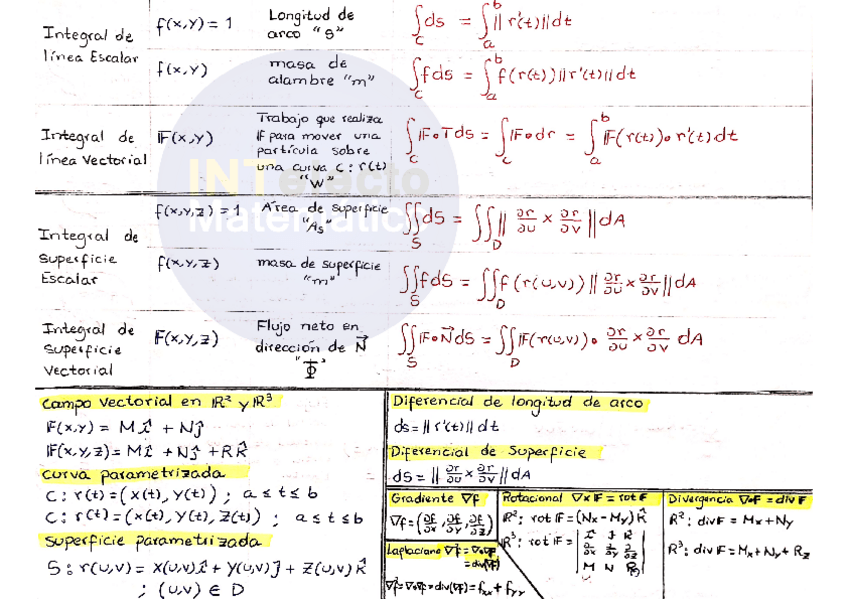 Integral de
línea Escalar
f(x,y) = 1
Longitud de
arco "S"
∫_C ds = ∫_a^b ‖r'(t)‖dt
f(x,y)
masa de
alambre "m"
∫_C fds = ∫_a^b f(r(t))‖r'(t)‖dt
Integral de
línea Vectorial
𝔽(x,y)
Trabajo que realiza
𝔽 para mover una
partícula sobre
una curva C: r(t)
"W"
∫_C 𝔽∘Tds = ∫_C 𝔽∘dr = ∫_a^b 𝔽(r(t))∘r'(t)dt
INTelecto
Matemático
Integral de
superficie
Escalar
f(x,y,z) = 1
Área de superficie
"As"
∬_S dS = ∬_D ‖∂r/∂u × ∂r/∂v‖dA
f(x,y,z)
masa de superficie
"m"
∬_S fdS = ∬_D f(r(u,v))‖∂r/∂u × ∂r/∂v‖dA
Integral de
superficie
Vectorial
𝔽(x,y,z)
Flujo neto en
dirección de N⃗
"Φ"
∬_S 𝔽∘N⃗dS = ∬_D 𝔽(r(u,v))∘ ∂r/∂u × ∂r/∂v dA
Campo vectorial en ℝ² y ℝ³
𝔽(x,y) = Mî + Nĵ
𝔽(x,y,z) = Mî + Nĵ + Rk̂
curva parametrizada
C: r(t) = (x(t), y(t)) ; a ≤ t ≤ b
C: r(t) = (x(t), y(t), z(t)) ; a ≤ t ≤ b
Superficie parametrizada
S: r(u,v) = x(u,v)î + y(u,v)ĵ + z(u,v)k̂
; (u,v) ∈ D
Diferencial de longitud de arco
ds = ‖r'(t)‖dt
Diferencial de Superficie
dS = ‖∂r/∂u × ∂r/∂v‖dA
Gradiente ∇f
∇f = (∂f/∂x, ∂f/∂y, ∂f/∂z)
Laplaciano ∇²f = ∇∘∇f
= div(∇f)
∇²f = ∇∘∇f = div(∇f) = fxx + fyy
Rotacional ∇×𝔽 = rot 𝔽
ℝ²: rot𝔽 = (Nx - My)k̂
ℝ³: rot𝔽 = | î ĵ k̂ |
| ∂/∂x ∂/∂y ∂/∂z |
| M N R |
Divergencia ∇∘F = div F
R²: divF = Mx + Ny
R³: divF = Mx + Ny + Rz